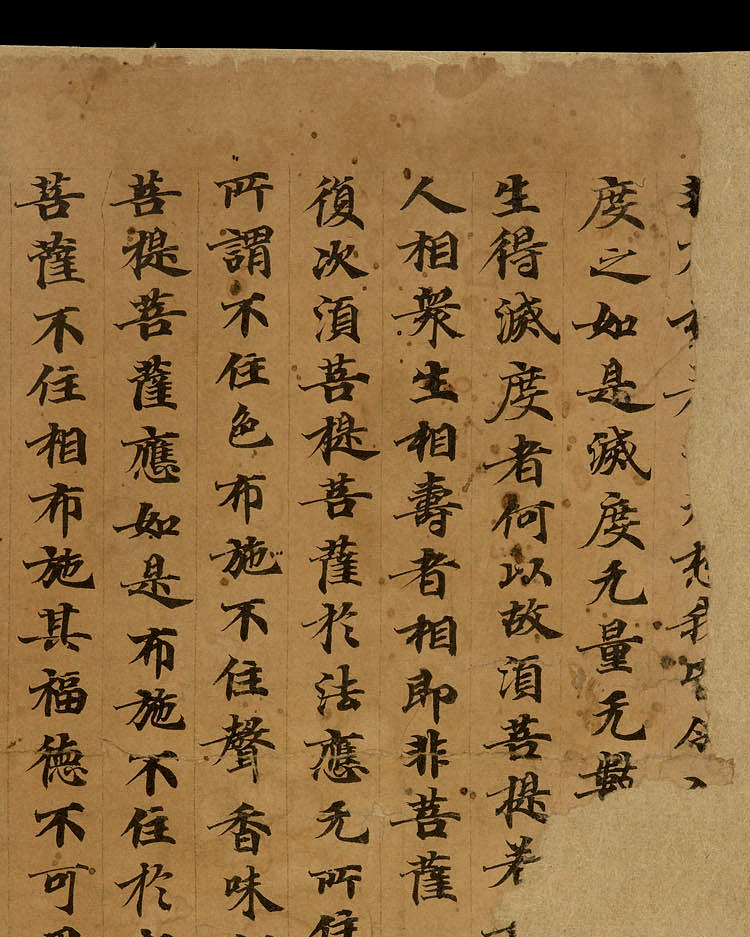 想我皆令
度之如是滅度无量无數
生得滅度者何以故湏菩提若
人相衆生相壽者相即非菩薩
復次湏菩提菩薩扵法應无所住
所謂不住色布施不住聲香味
菩提菩薩應如是布施不住扵
菩薩不住相布施其福德不可